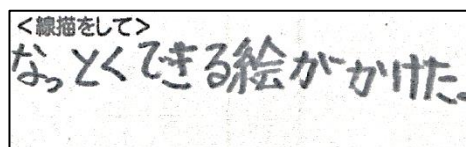 <線描をして>
なっとくできる絵がかけた。